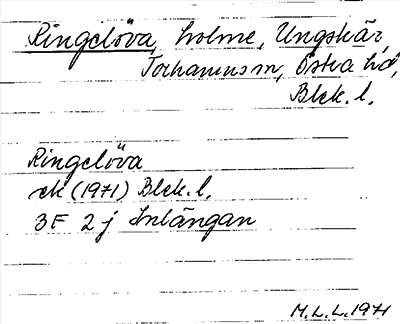 Ringelöva, holme, Ungskär,
Torhamns sn, Östra hd,
Blek. l.
Ringelöva
ek (1971) Blek. l.
3F 2j Inlängan
M.L.L. 1971